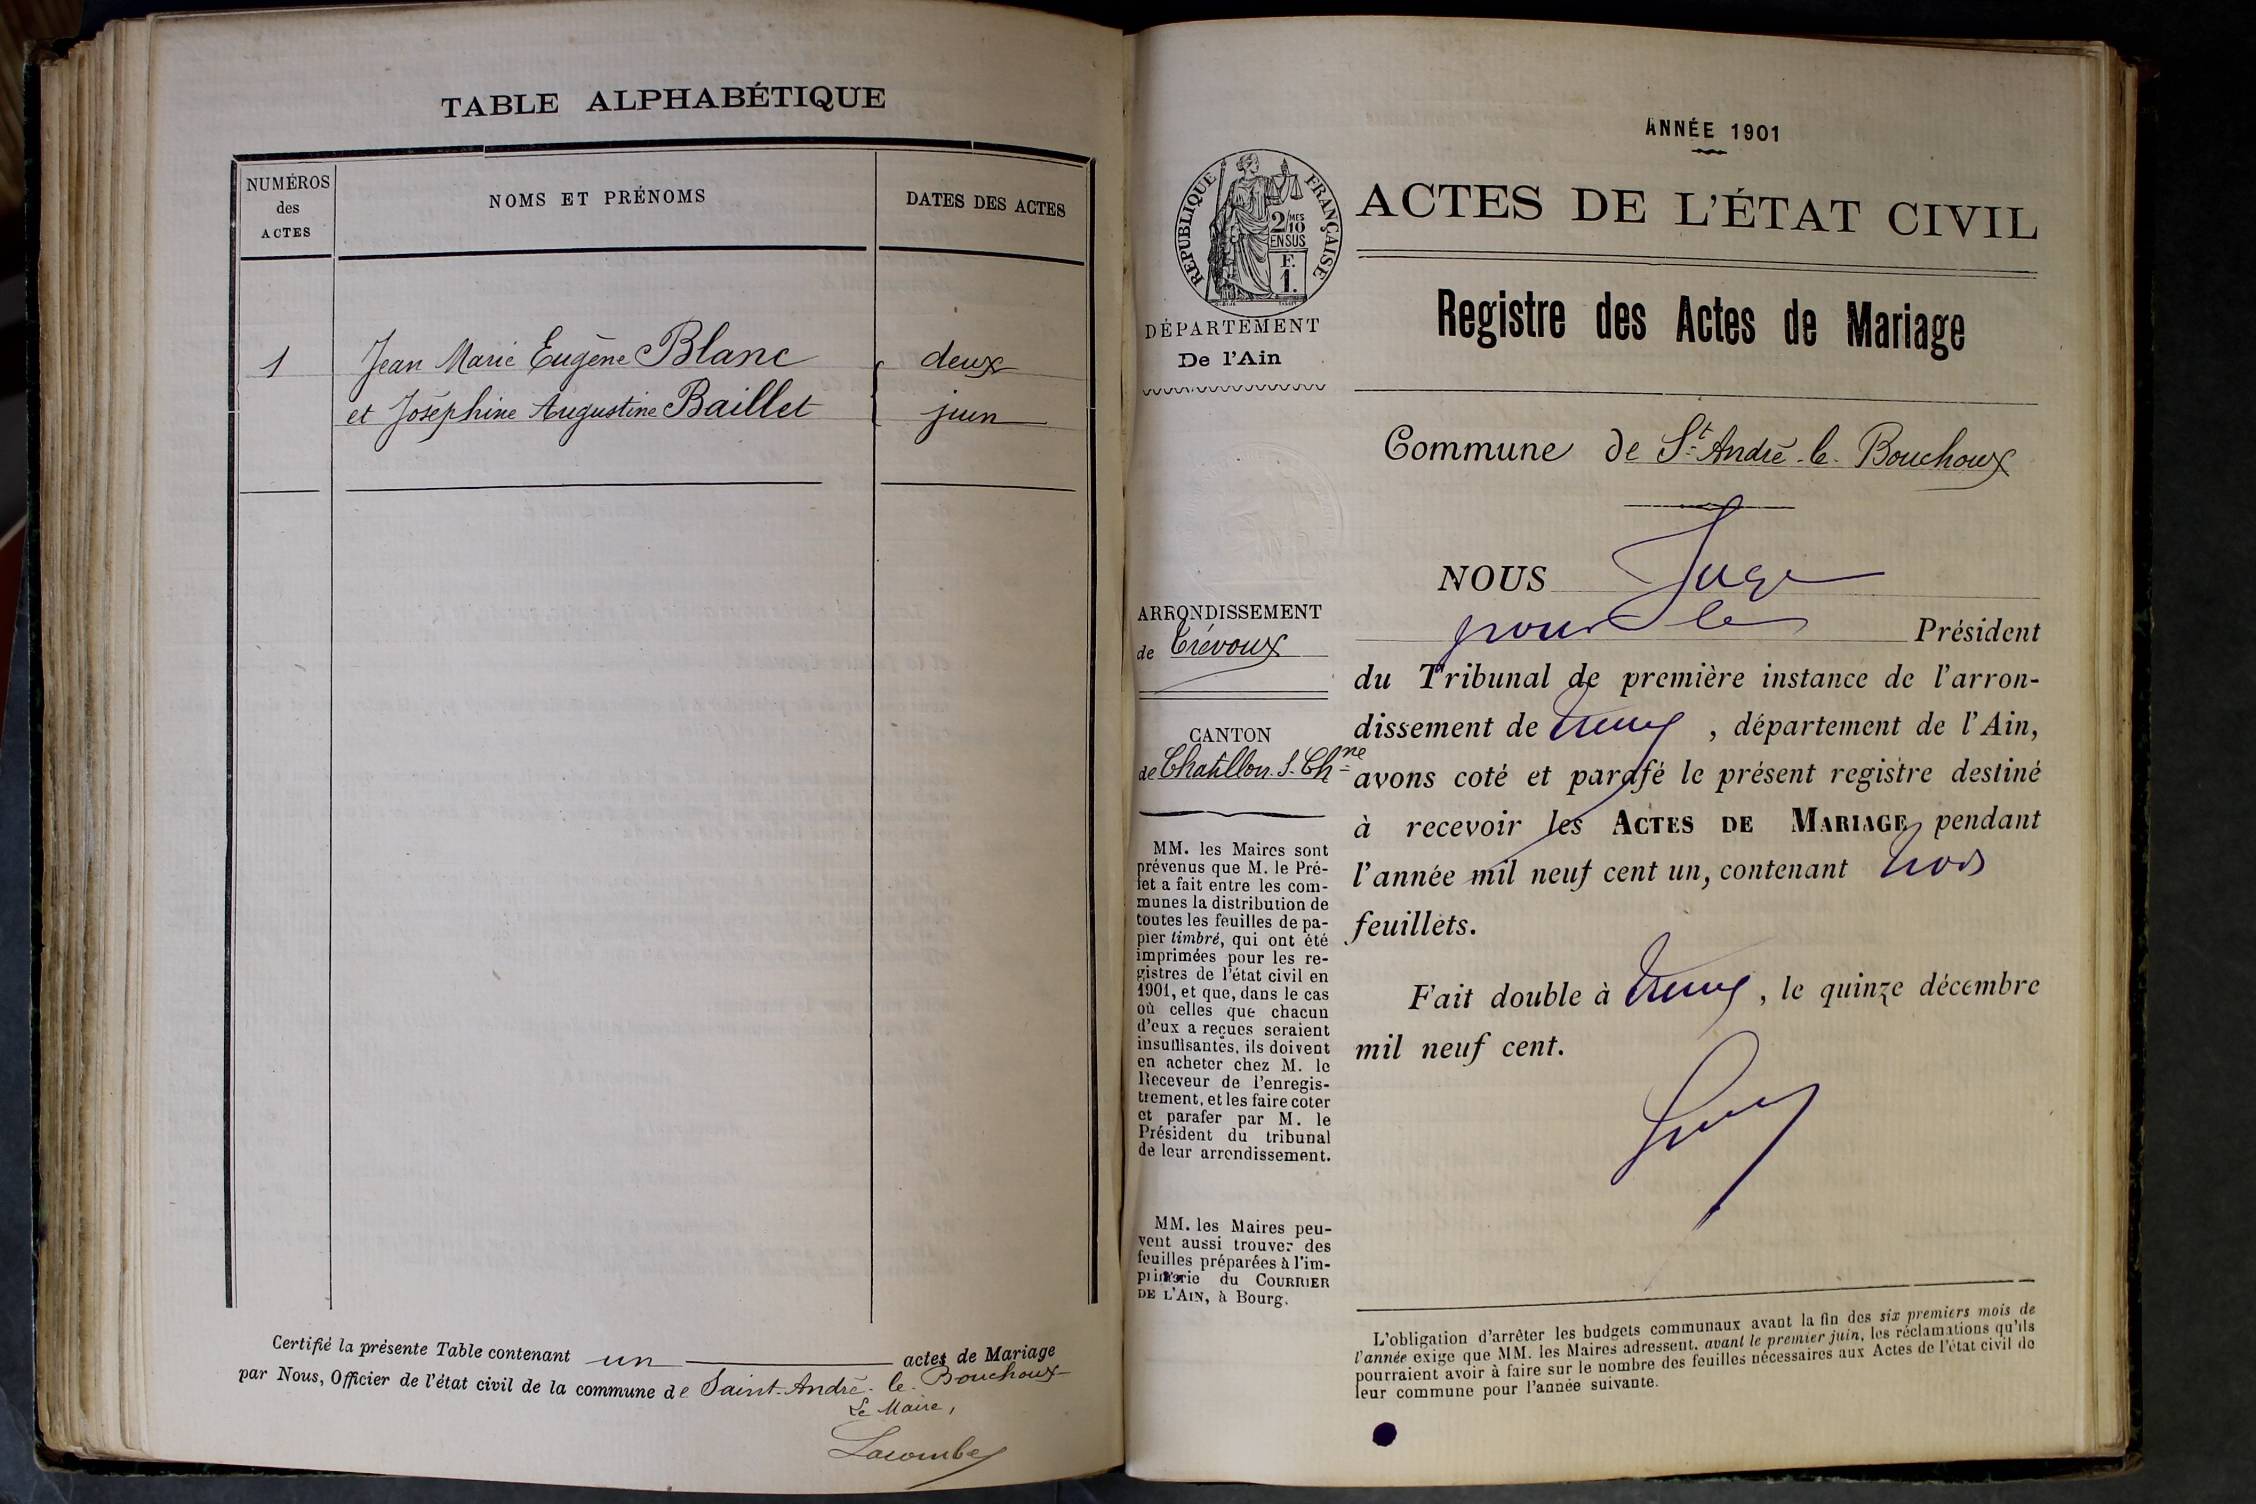 TABLE ALPHABÉTIQUE
NUMÉROS
des
ACTES
NOMS ET PRÉNOMS
DATES DES ACTES
1 Jean Marie Eugène Blanc deux
et Joséphine Augustine Baillet juin
Certifié la présente Table contenant un actes de Mariage
par Nous, Officier de l'état civil de la commune de Saint-André-le-Bouchoux
Le Maire,
Lacombe
ANNÉE 1901
RÉPUBLIQUE FRANÇAISE
2/10 MES
EN SUS
F.
1.
DÉPARTEMENT
De l'Ain
ARRONDISSEMENT
de Trévoux
CANTON
de Chatillon-s-Chne
MM. les Maires sont
prévenus que M. le Pré-
fet a fait entre les com-
munes la distribution de
toutes les feuilles de pa-
pier timbré, qui ont été
imprimées pour les re-
gistres de l'état civil en
1901, et que, dans le cas
où celles que chacun
d'eux a reçues seraient
insuffisantes, ils doivent
en acheter chez M. le
Receveur de l'enregis-
trement, et les faire coter
et parafer par M. le
Président du tribunal
de leur arrondissement.
MM. les Maires peu-
vent aussi trouver des
feuilles préparées à l'im-
primerie du COURRIER
DE L'AIN, à Bourg.
ACTES DE L'ÉTAT CIVIL
Registre des Actes de Mariage
Commune de St-André-le-Bouchoux
NOUS Juge
pour le Président
du Tribunal de première instance de l'arron-
dissement de Trévoux, département de l'Ain,
avons coté et parafé le présent registre destiné
à recevoir les ACTES DE MARIAGE pendant
l'année mil neuf cent un, contenant trois
feuillets.
Fait double à Trévoux, le quinze décembre
mil neuf cent.
L'obligation d'arrêter les budgets communaux avant la fin des six premiers mois de
l'année exige que MM. les Maires adressent, avant le premier juin, les réclamations qu'ils
pourraient avoir à faire sur le nombre des feuilles nécessaires aux Actes de l'état civil de
leur commune pour l'année suivante.